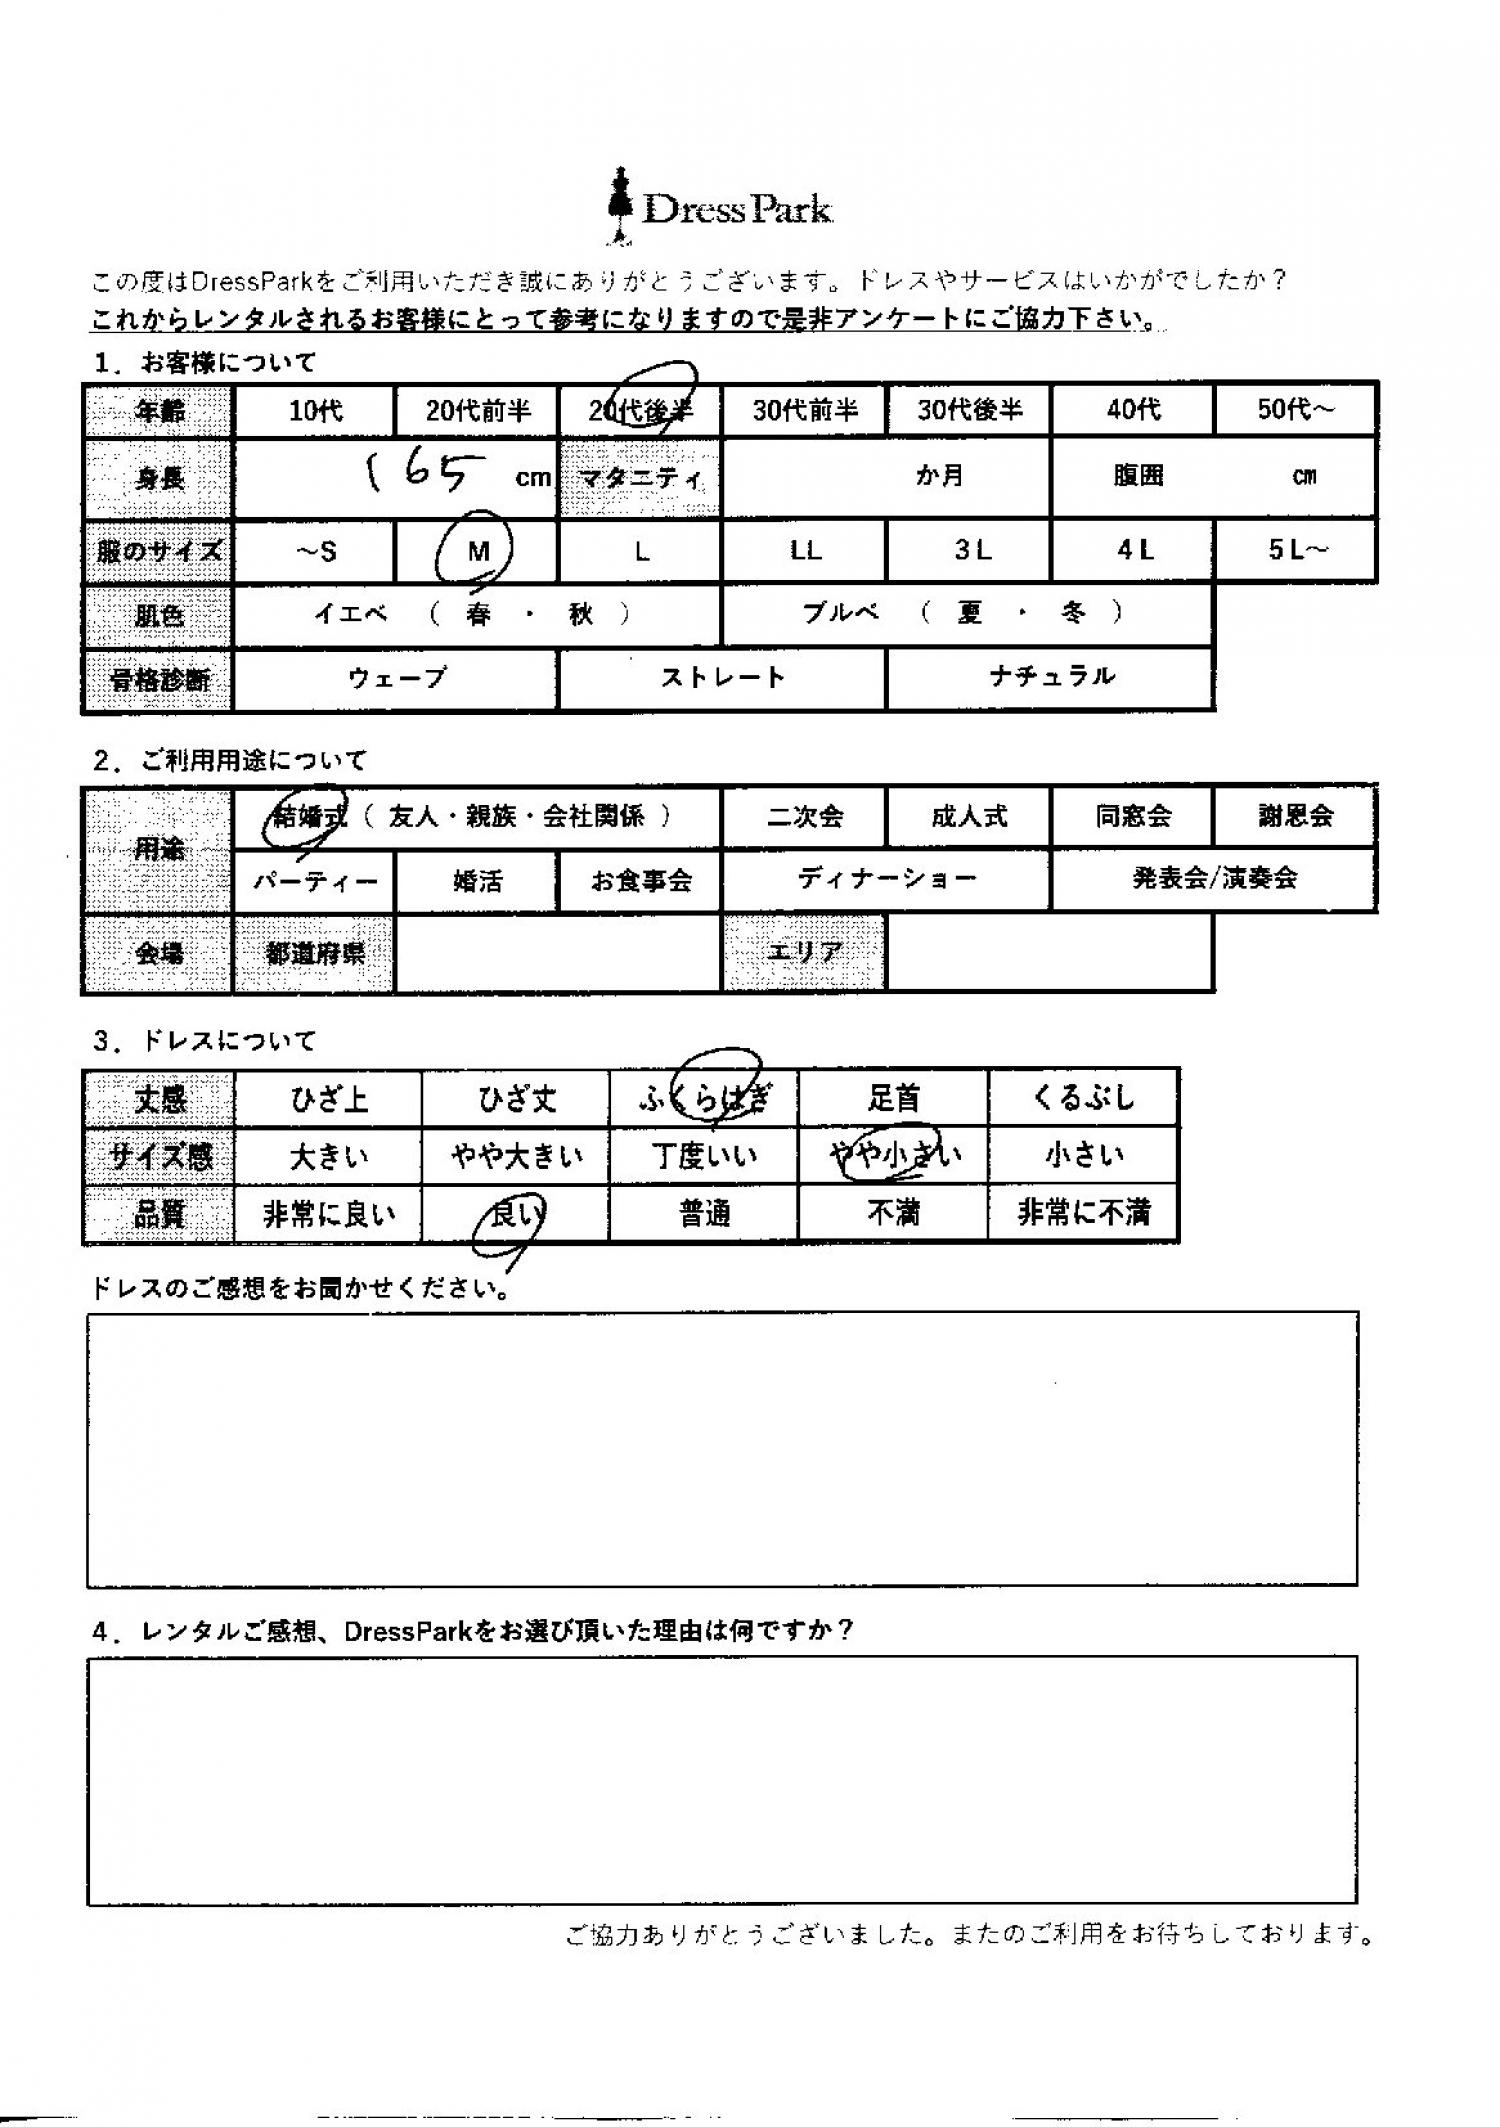 DressPark
この度はDressParkをご利用いただき誠にありがとうございます。ドレスやサービスはいかがでしたか？
これからレンタルされるお客様にとって参考になりますので是非アンケートにご協力下さい。
1．お客様について
年齢 10代 20代前半 20代後半 30代前半 30代後半 40代 50代～
身長 165 cm マタニティ か月 腹囲 ㎝
服のサイズ ～S M L LL 3L 4L 5L～
肌色 イエベ （ 春 ・ 秋 ） ブルべ （ 夏 ・ 冬 ）
骨格診断 ウェーブ ストレート ナチュラル
2．ご利用用途について
用途 結婚式（ 友人・親族・会社関係 ） 二次会 成人式 同窓会 謝恩会
パーティー 婚活 お食事会 ディナーショー 発表会/演奏会
会場 都道府県 エリア
3．ドレスについて
丈感 ひざ上 ひざ丈 ふくらはぎ 足首 くるぶし
サイズ感 大きい やや大きい 丁度いい やや小さい 小さい
品質 非常に良い 良い 普通 不満 非常に不満
ドレスのご感想をお聞かせください。
4．レンタルご感想、DressParkをお選び頂いた理由は何ですか？
ご協力ありがとうございました。またのご利用をお待ちしております。